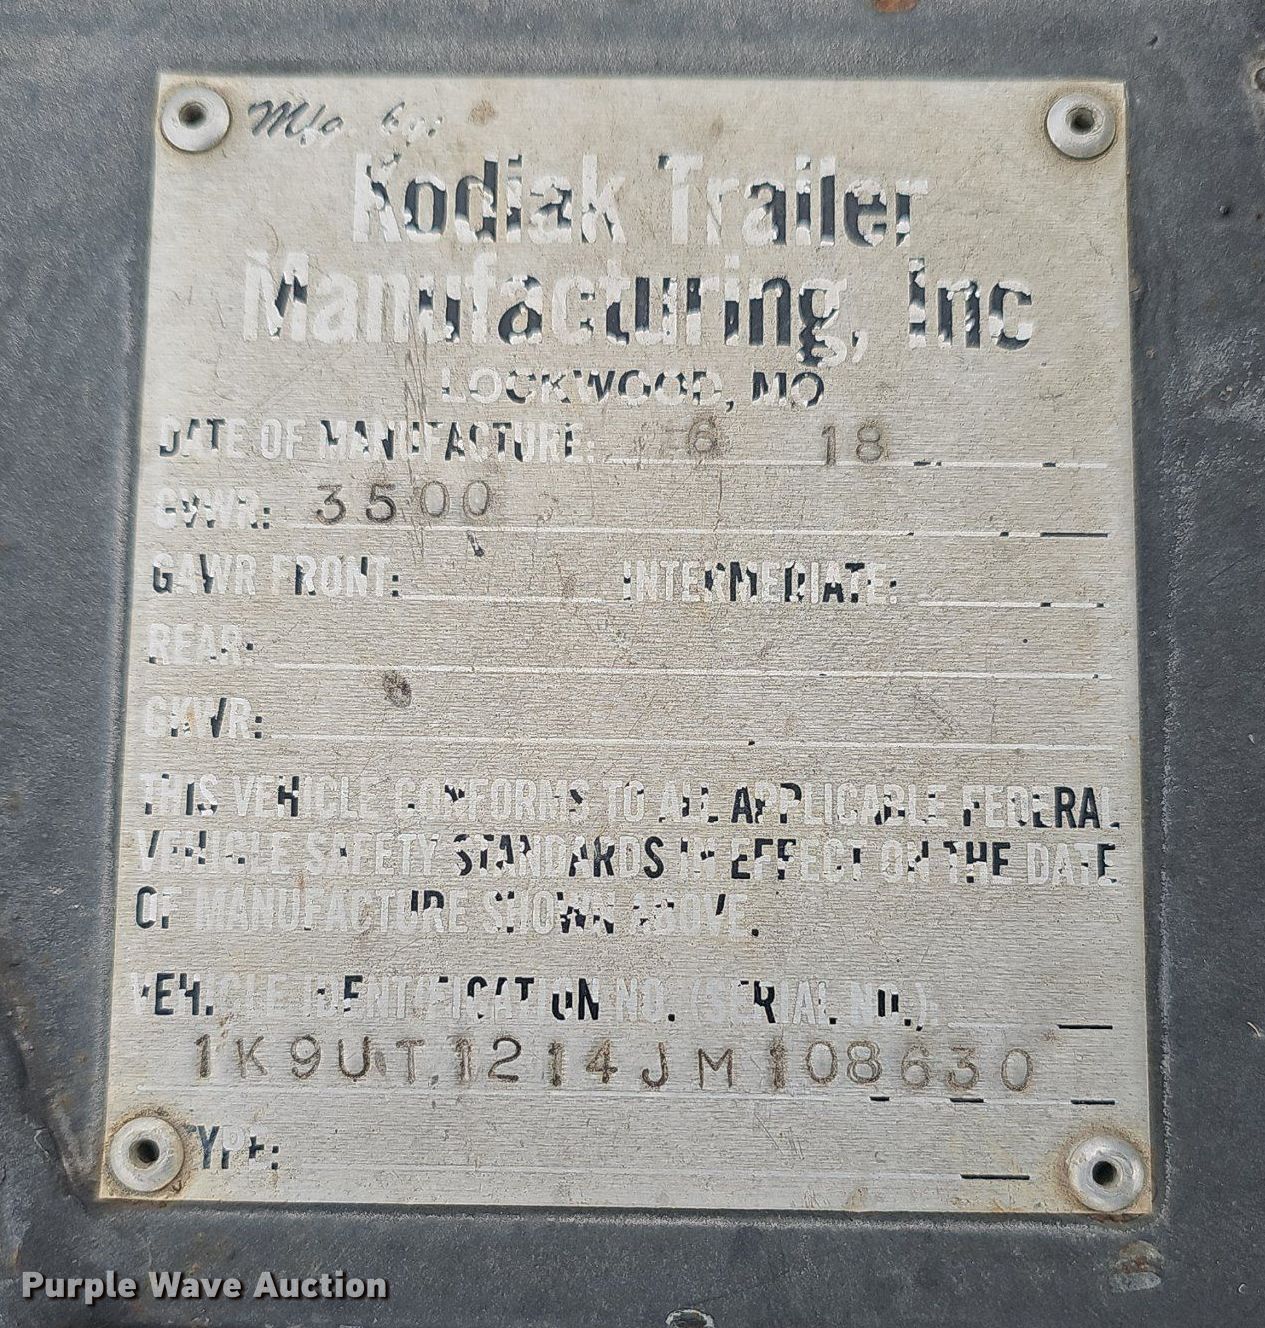 Mfg. by:
Kodiak Trailer
Manufacturing, Inc
LOCKWOOD, MO
DATE OF MANUFACTURE: 6 18
GVWR: 3500
GAWR FRONT: INTERMEDIATE:
REAR:
GKWR:
THIS VEHICLE CONFORMS TO ALL APPLICABLE FEDERAL
VEHICLE SAFETY STANDARDS IN EFFECT ON THE DATE
OF MANUFACTURE SHOWN ABOVE.
VEHICLE IDENTIFICATION NO. (SERIAL NO.)
1K9UT1214JM108630
TYPE:
Purple Wave Auction